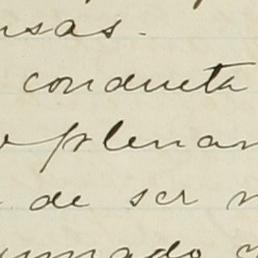 nsas.
conducta
plenam
de ser
mado